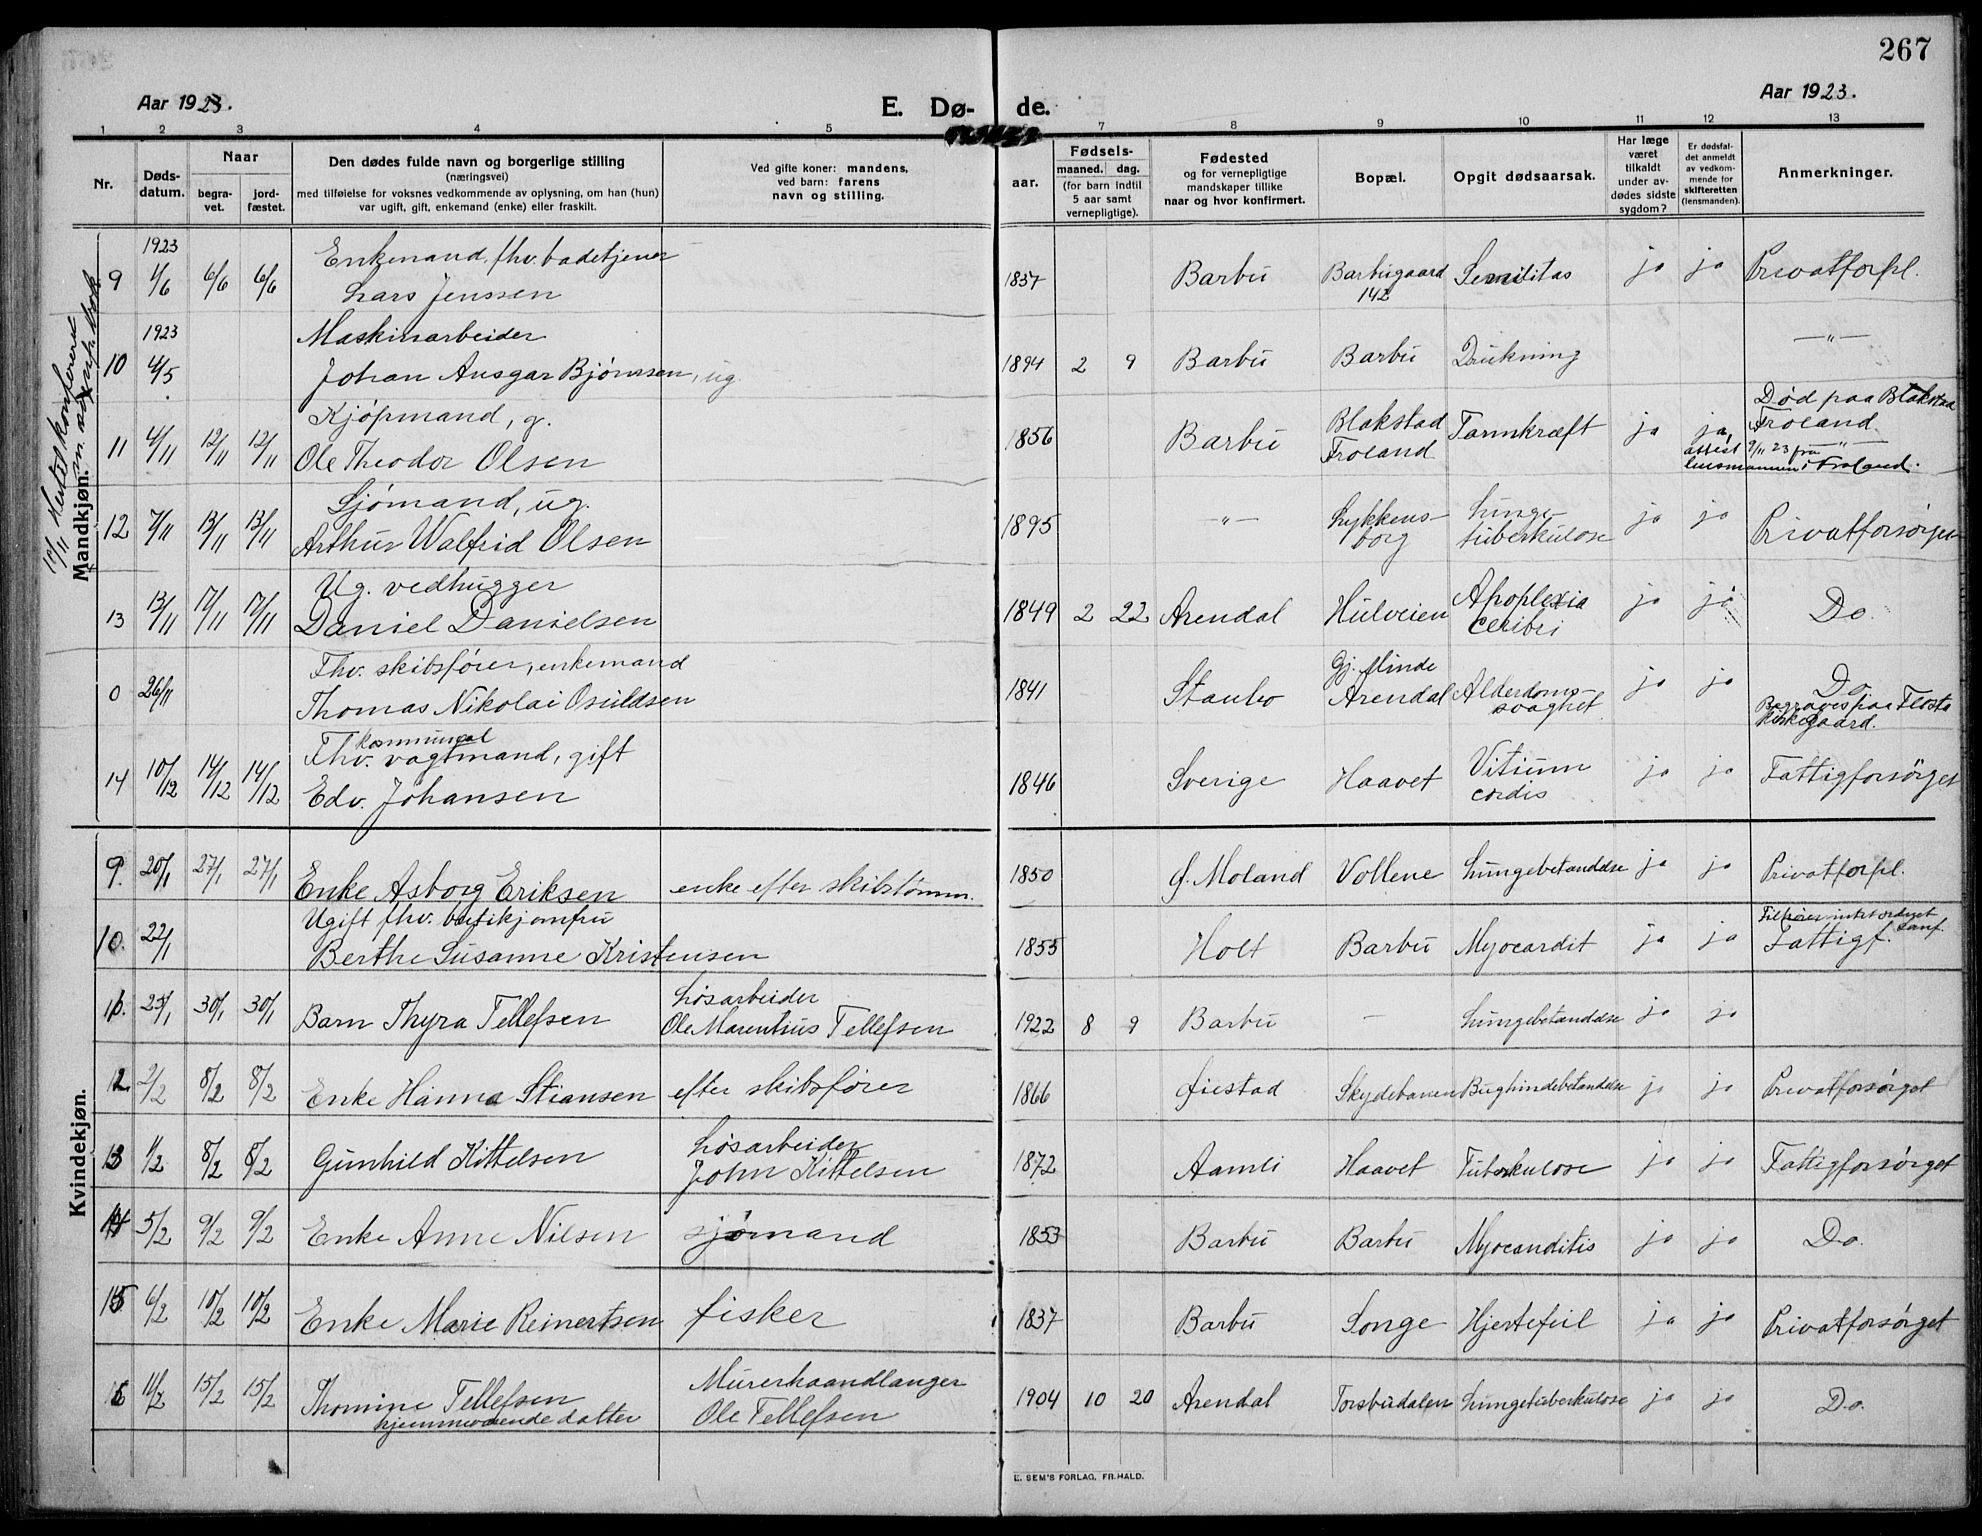 267
Aar 1923.
E. Dø-
de.
Aar 1923.
1 2 3 4 5 7 8 9 10 11 12 13
Nr.
Døds-
datum.
Naar
begra-
vet.
jord-
fæstet.
Den dødes fulde navn og borgerlige stilling
(næringsvei)
med tilføielse for voksnes vedkommende av oplysning, om han (hun)
var ugift, gift, enkemand (enke) eller fraskilt.
Ved gifte koner: mandens,
ved barn: farens
navn og stilling.
aar.
Fødsels-
maaned. dag.
(for barn indtil
5 aar samt
vernepligtige).
Fødested
og for vernepligtige
mandskaper tillike
naar og hvor konfirmert.
Bopæl.
Opgit dødsaarsak.
Har læge
været
tilkaldt
under av-
dødes sidste
sygdom?
Er dødsfal-
det anmeldt
av vedkom-
mende for
skifteretten
(lensmanden).
Anmerkninger.
Mandkjøn.
1923
Enkemand, fhv. badetjener
9 1/6 6/6 6/6 Lars Jenssen 1837 Barbu Barbugaard Senilitas ja ja Privatforpl.
142
1923
Maskinarbeider
10 4/5 Johan Ansgar Bjørnsen, ug. 1894 2 9 Barbu Barbu Drukning —"—
Kjøpmand, g.
11 4/11 12/11 12/11 Ole Theodor Olsen 1856 Barbu Blakstad Tarmkræft ja ja, Død paa Blakstad
Froland
Froland
attest 9/11 23 fra
lensmannen i Froland.
Sjømand, ug.
12 7/11 13/11 13/11 Arthur Walfrid Olsen 1895 —"— Lykkens- Lunge- ja ja Privatforsørget
borg tuberkulose
Ug. vedhugger
13 13/11 17/11 17/11 Daniel Danielsen 1849 2 22 Arendal Hulveien Apoplexia ja ja Do.
ceribri
Fhv. skibsfører, enkemand
0 26/11 Thomas Nikolai Osuldsen 1841 Staubo Gj. Minde
Arendal Alderdoms- ja ja Do
svaghet
Begraves paa Flosta
Kirkegaard.
kommunal
Fhv. vagtmand, gift
14 10/12 14/12 14/12 Edv. Johansen 1846 Sverige Haavet Vitium ja ja Fattigforsørget
cordis
Kvindekjøn.
9. 20/1 27/1 27/1 Enke Asborg Eriksen enke efter skibstømm. 1850 Ø. Moland Vollene Lungebetændelse ja ja Privatforpl.
Ugift fhv. butikjomfru
10. 22/1 Berthe Susanne Kristensen 1855 Holt Barbu Myocardit ja ja Fattigf.
11. 25/1 30/1 30/1 Barn Thyra Tellefsen Løsarbeider
Ole Marentius Tellefsen 1922 8 9 Barbu — Lungebetændelse ja ja
12 2/2 8/2 8/2 Enke Hanna Stiansen efter skibsfører 1866 Øiestad Skydebanen Bughindebetændelse ja ja Privatforsørget
13 1/2 8/2 8/2 Gunhild Kittelsen Løsarbeider
John Kittelsen 1872 Aamli Haavet Tuberkulose ja ja Fattigforsørget
14 5/2 9/2 9/2 Enke Anne Nilsen sjømand 1853 Barbu Barbu Myocarditis ja ja Do.
15 6/2 10/2 10/2 Enke Marie Reinertsen fisker 1837 Barbu Songe Hjertefeil ja ja Privatforsørget
16 11/2 15/2 15/2 Thomine Tellefsen
hjemmeværende datter
Murerhaandlanger
Ole Tellefsen 1904 10 20 Arendal Torsbudalen Lungetuberkulose ja ja Do.
E. SEM'S FORLAG, FR.HALD.